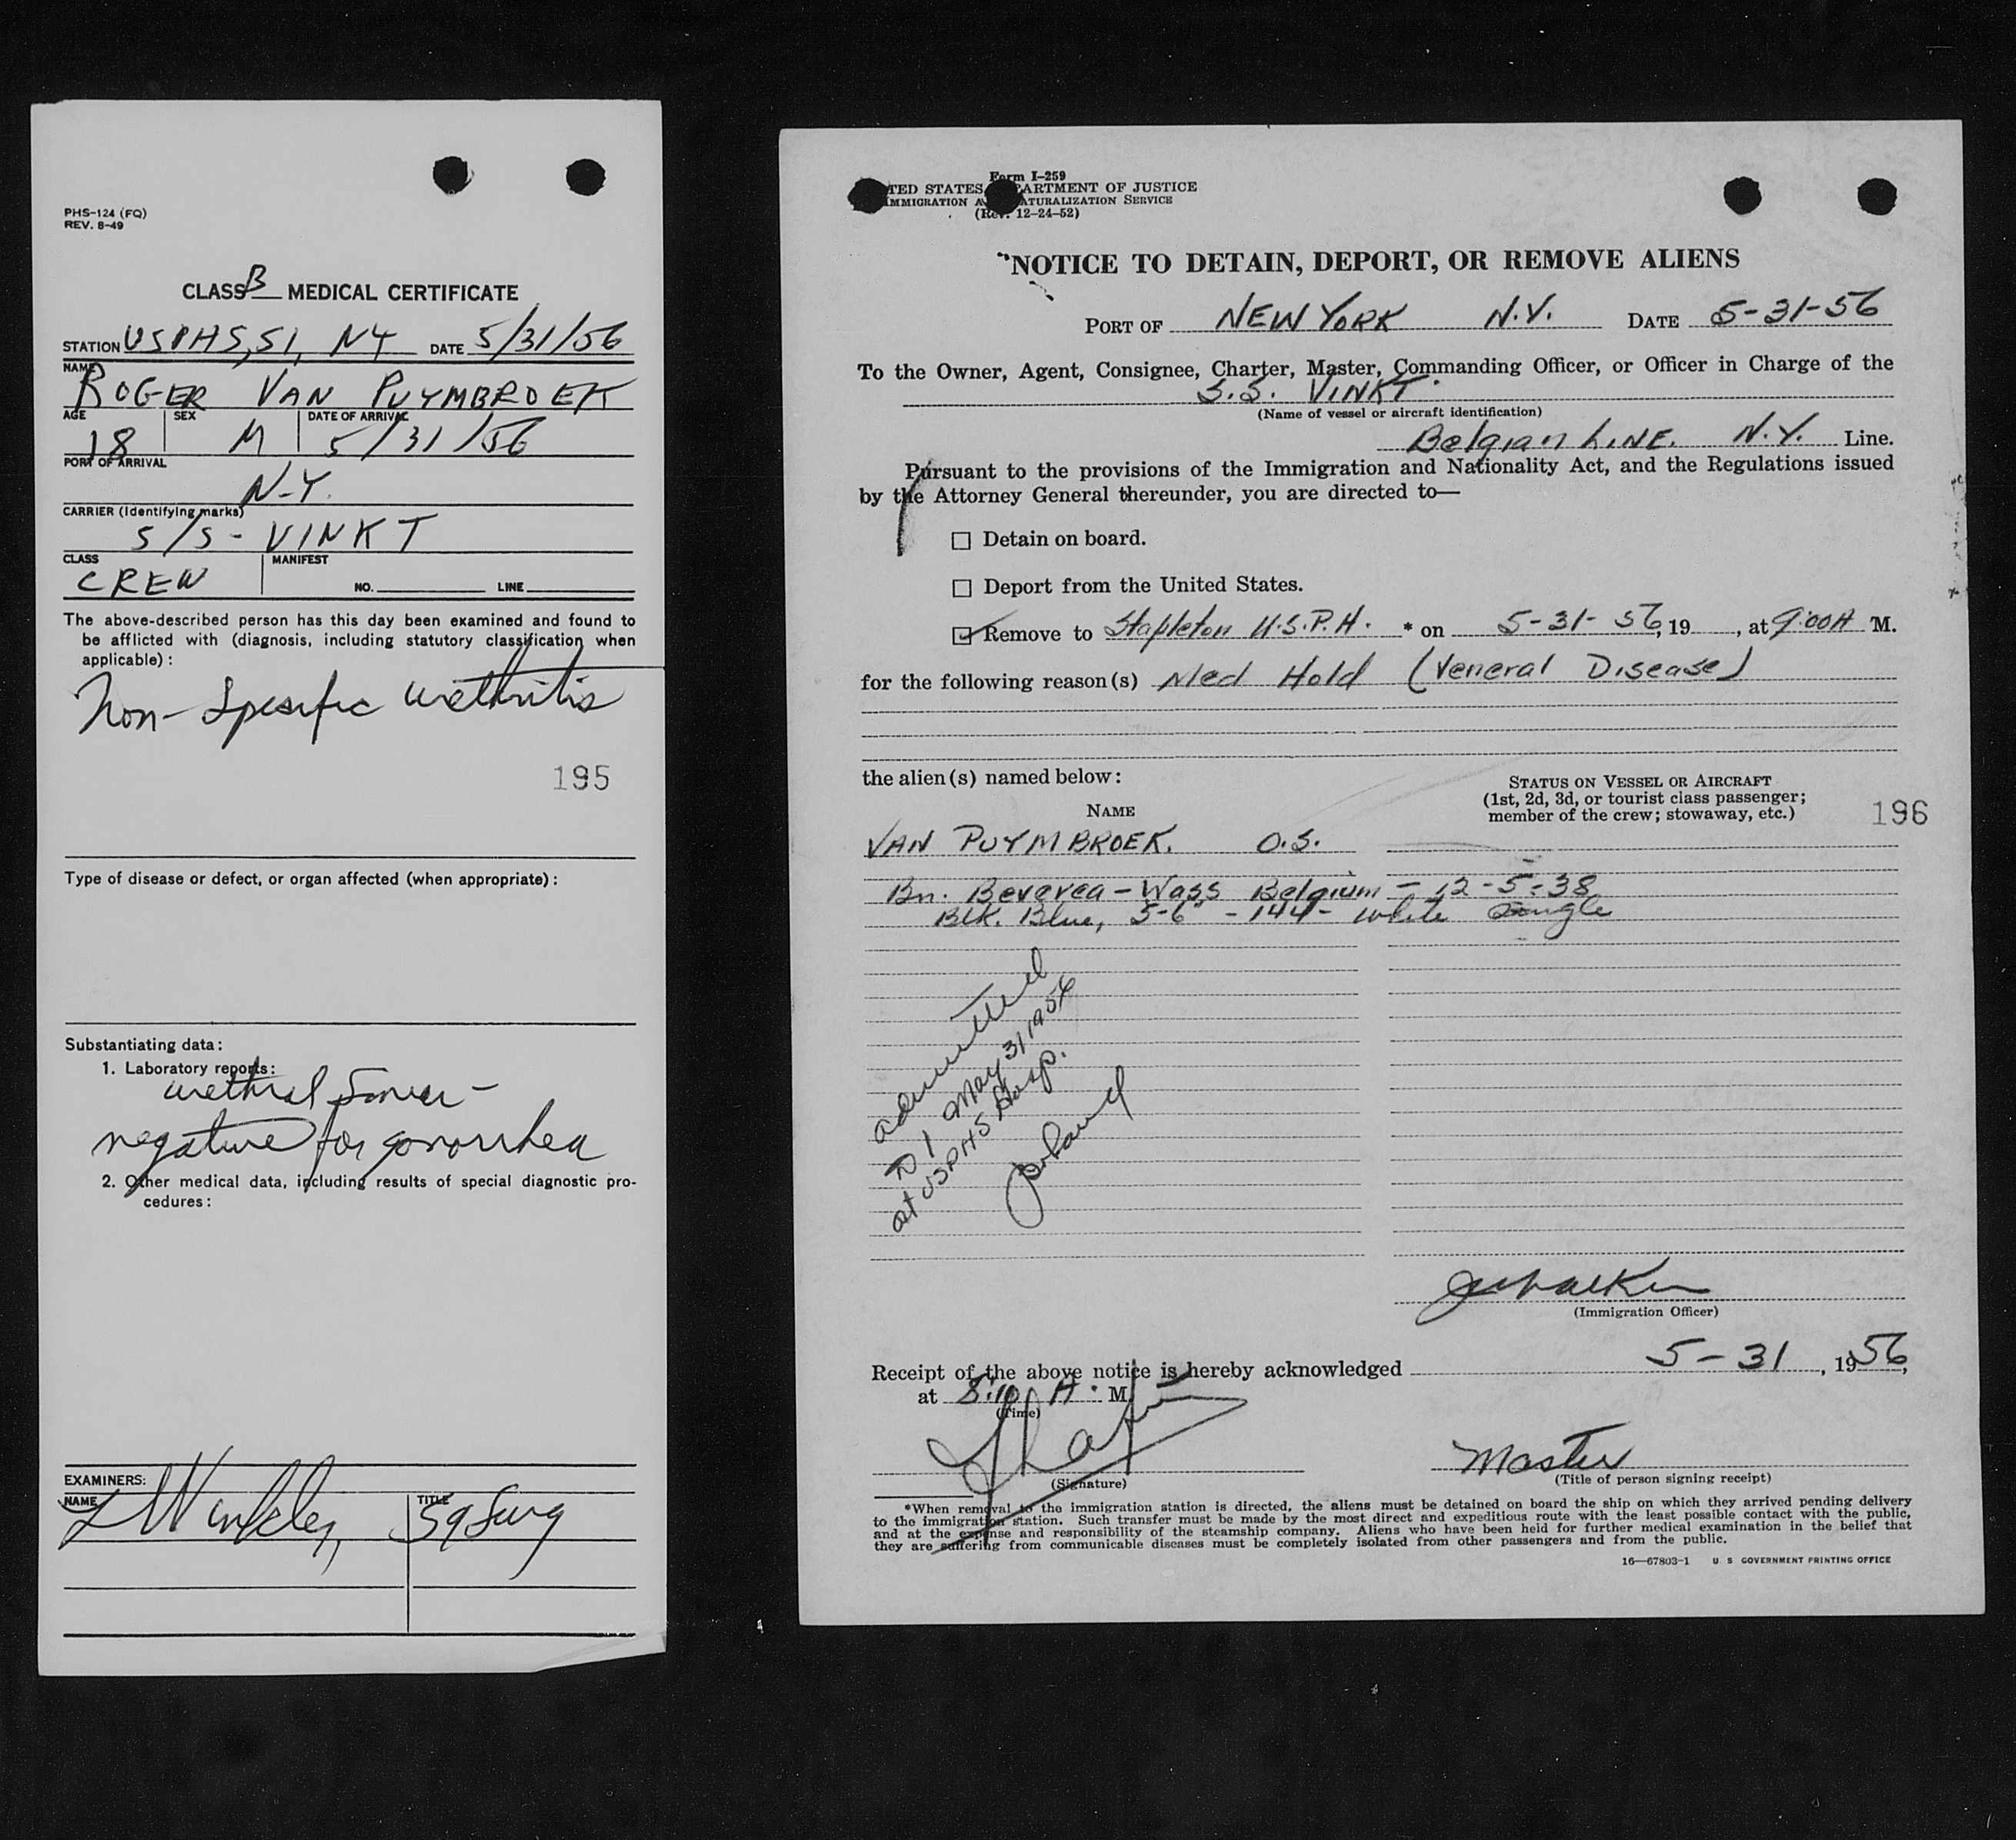 PHS-124 (FQ)
REV. 8-49
CLASS B MEDICAL CERTIFICATE
STATION USPHS, SI, NY DATE 5/31/56
NAME
ROGER VAN PUYMBROEK
AGE SEX DATE OF ARRIVAL
18 M 5/31/56
PORT OF ARRIVAL
N.Y.
CARRIER (Identifying marks)
S/S - VINKT
CLASS MANIFEST
CREW NO. LINE
The above-described person has this day been examined and found to
be afflicted with (diagnosis, including statutory classification when
applicable):
Non-Spesific Urethritis
195
Type of disease or defect, or organ affected (when appropriate):
Substantiating data:
1. Laboratory reports:
urethral smear -
negative for gonorrhea
2. Other medical data, including results of special diagnostic pro-
cedures:
EXAMINERS:
NAME TITLE
L Winkley, Sq Surg
Form I-259
TED STATES PARTMENT OF JUSTICE
IMMIGRATION A ATURALIZATION SERVICE
(Rev. 12-24-52)
NOTICE TO DETAIN, DEPORT, OR REMOVE ALIENS
PORT OF NEW YORK N.Y. DATE 5-31-56
To the Owner, Agent, Consignee, Charter, Master, Commanding Officer, or Officer in Charge of the
S.S. VINKT
(Name of vessel or aircraft identification)
Belgian LINE. N.Y. Line.
Pursuant to the provisions of the Immigration and Nationality Act, and the Regulations issued
by the Attorney General thereunder, you are directed to—
☐ Detain on board.
☐ Deport from the United States.
☑ Remove to Stapleton U.S.P.H. * on 5-31-56, 19 , at 9:00 A M.
for the following reason(s) Med Hold (Veneral Disease)
the alien(s) named below:
NAME
STATUS ON VESSEL OR AIRCRAFT
(1st, 2d, 3d, or tourist class passenger;
member of the crew; stowaway, etc.)
196
VAN PUYMBROEK. O.S.
Bn. Beverea-Wass Belgium - 12-5-38
Blk. Blue, 5-6" - 144- white Single
admitted
May 31 1956
at USPHS Hosp.
(Immigration Officer)
Receipt of the above notice is hereby acknowledged 5-31, 1956,
at 8:10 A. M.
(Time)
Master
(Signature)
(Title of person signing receipt)
*When removal to the immigration station is directed, the aliens must be detained on board the ship on which they arrived pending delivery
to the immigration station. Such transfer must be made by the most direct and expeditious route with the least possible contact with the public,
and at the expense and responsibility of the steamship company. Aliens who have been held for further medical examination in the belief that
they are suffering from communicable diseases must be completely isolated from other passengers and from the public.
16—67803-1 U S GOVERNMENT PRINTING OFFICE